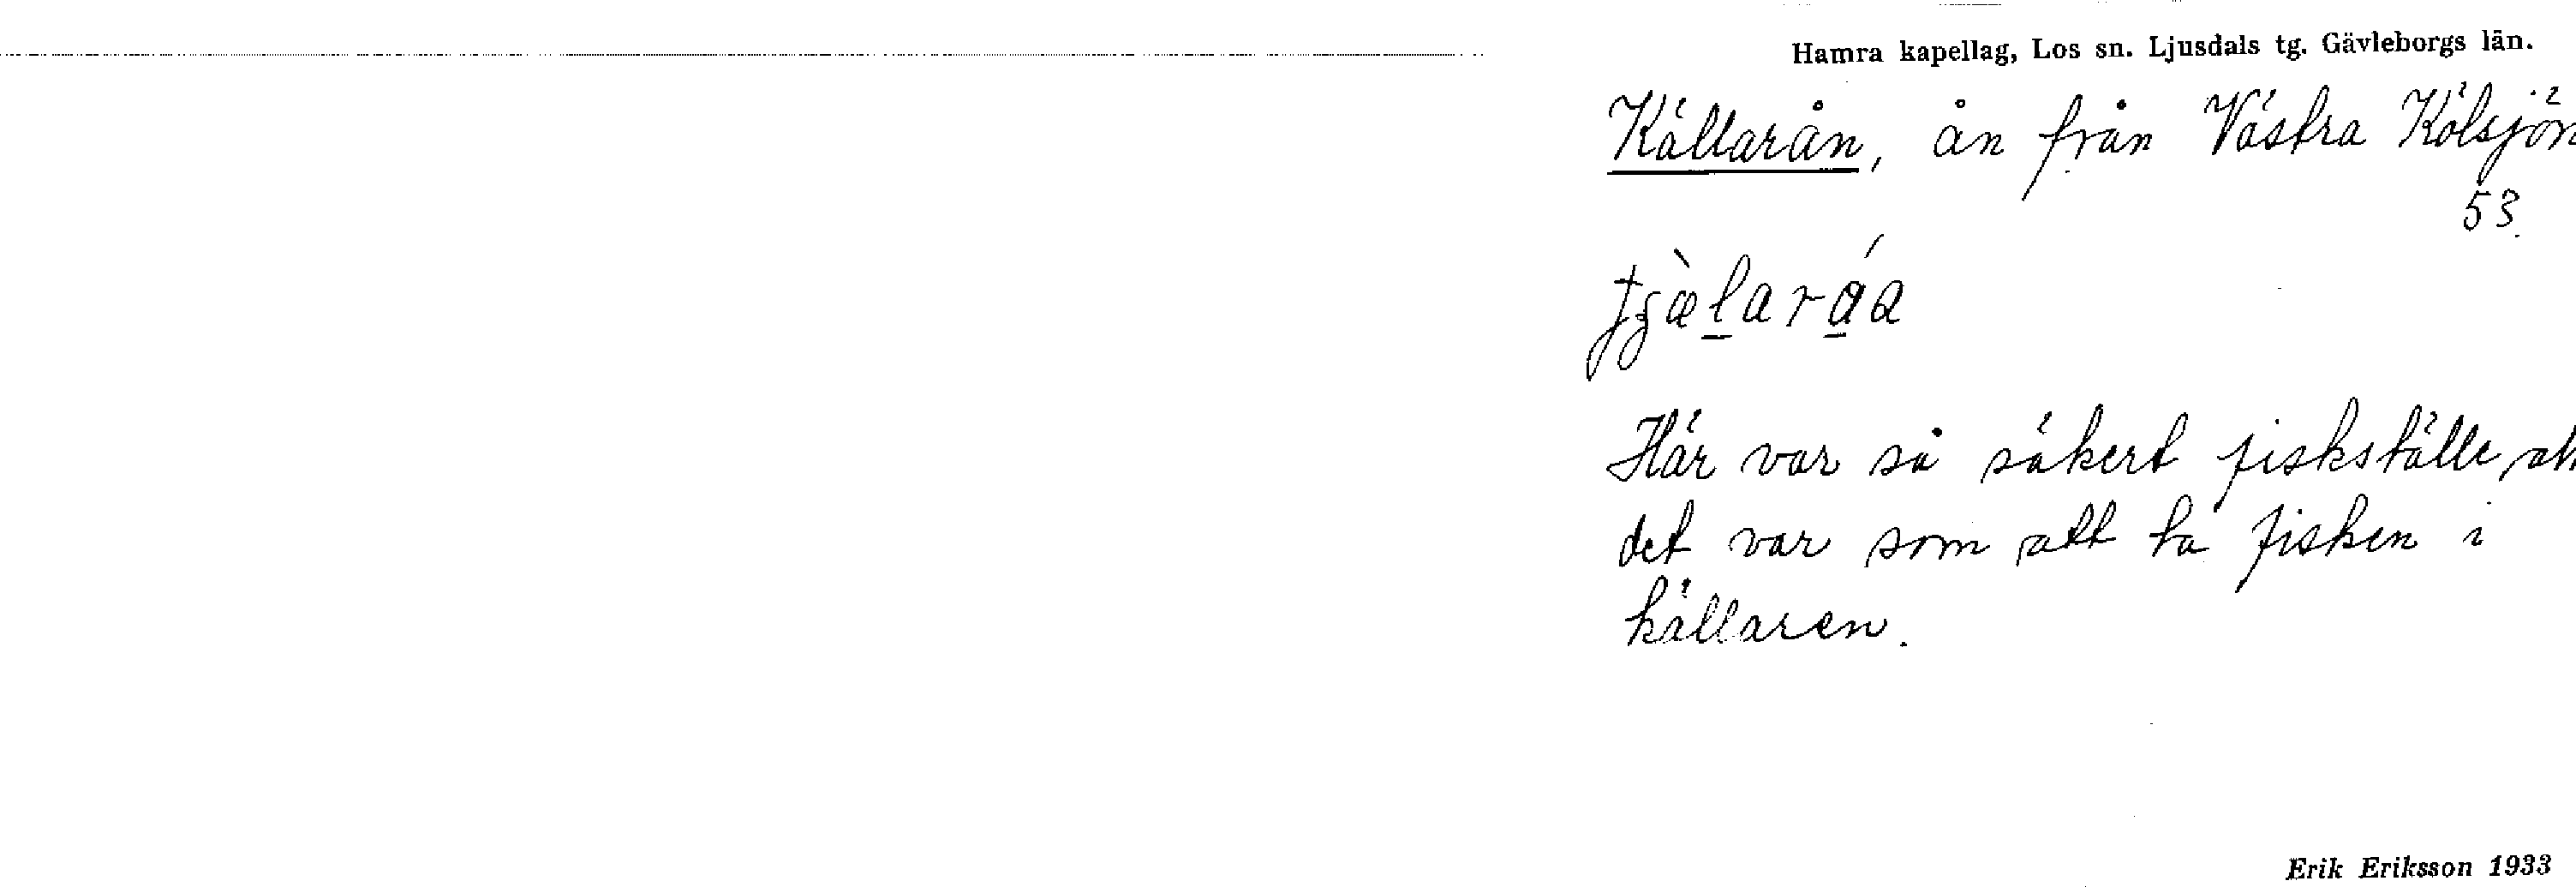 Hamra kapellag, Los sn. Ljusdals tg. Gävleborgs län.
Källarån, ån från Västra Kölsjön
53
Här var så säkert fiskställe, att
det var som att ta fisken i
källaren.
Erik Eriksson 1933